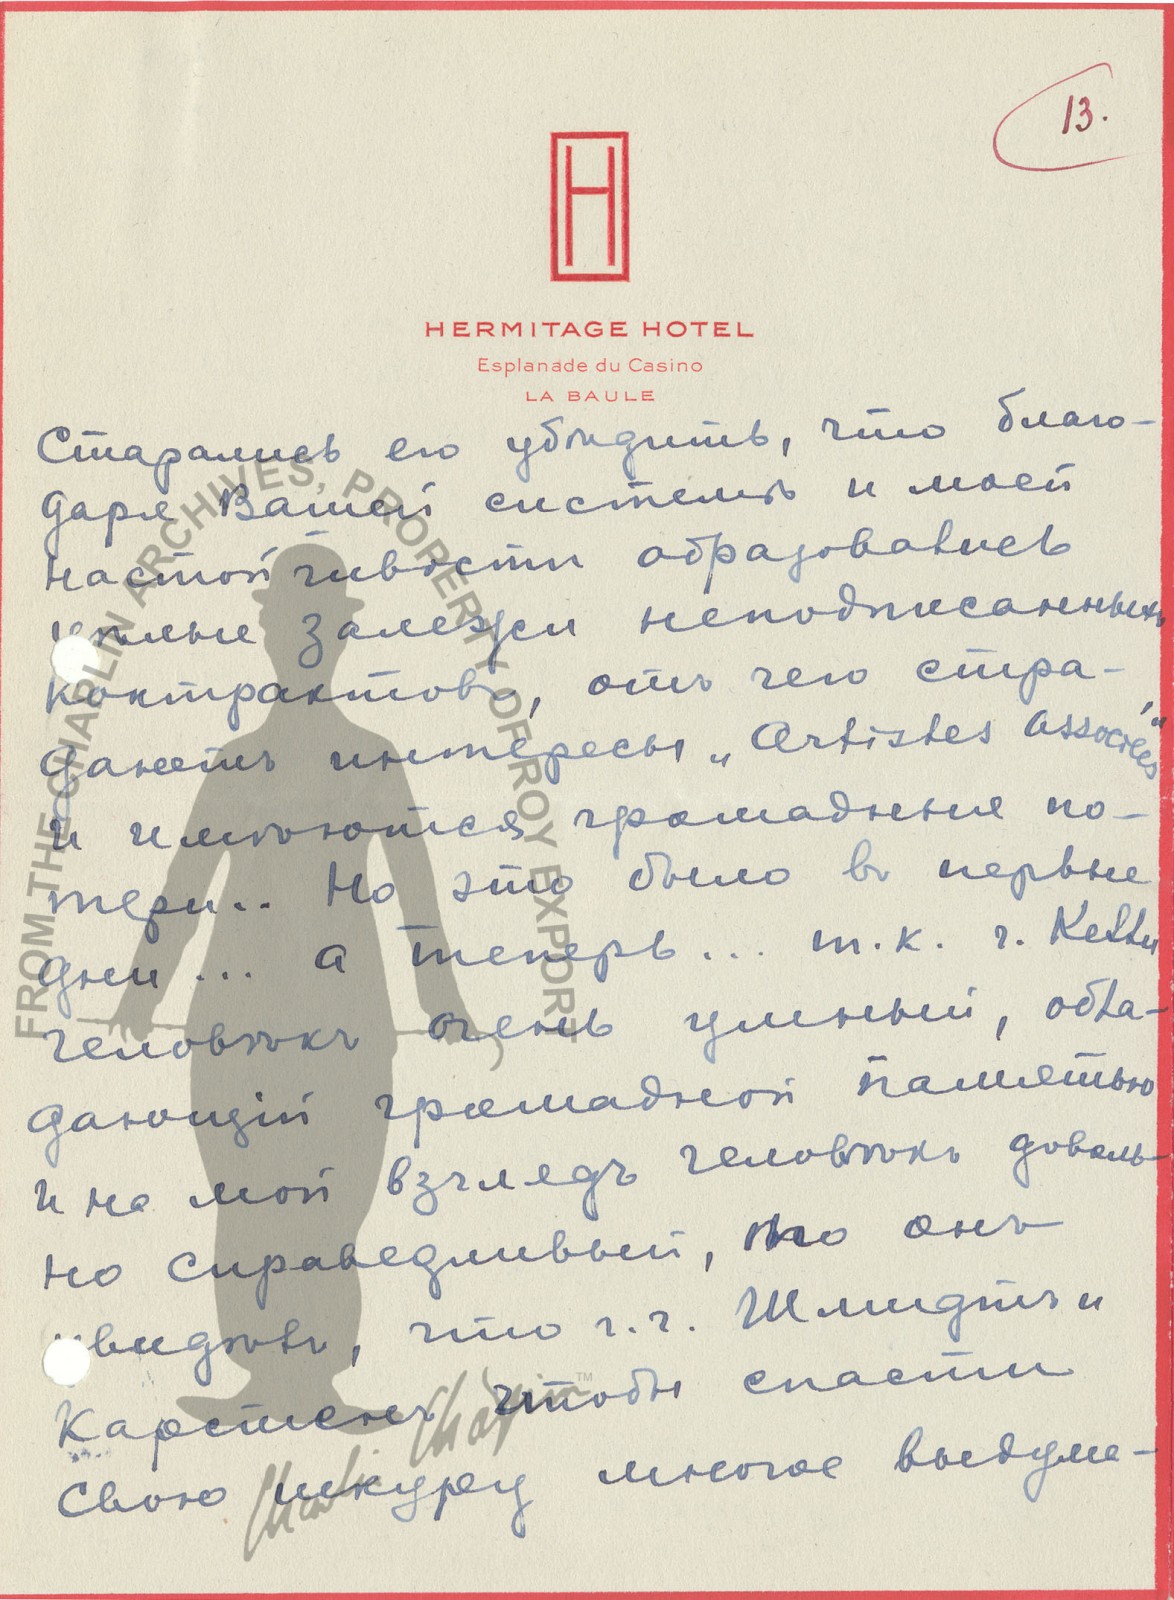 13.
H
HERMITAGE HOTEL
Esplanade du Casino
LA BAULE
старались его убѣдить, что благо-
даря Вашей системѣ и моей
настойчивости образовались
цѣлые залежи неподписанныхъ
контрактовъ, отъ чего стра-
даютъ интересы „Artistes Associés"
и имѣются громадныя по-
тери.. Но это было въ первые
дни... а теперь... т.к. г. Kelly
человѣкъ очень умный, обла-
дающій громадной памятью
и на мой взглядъ человѣкъ доволь-
но справедливый, то онъ
увидѣлъ, что г.г. Шмидтъ и
Карстенъ чтобы спасти
свою шкуру многое выдума-
FROM THE CHAPLIN ARCHIVES, PROPERTY OF ROY EXPORT
Charlie Chaplin™